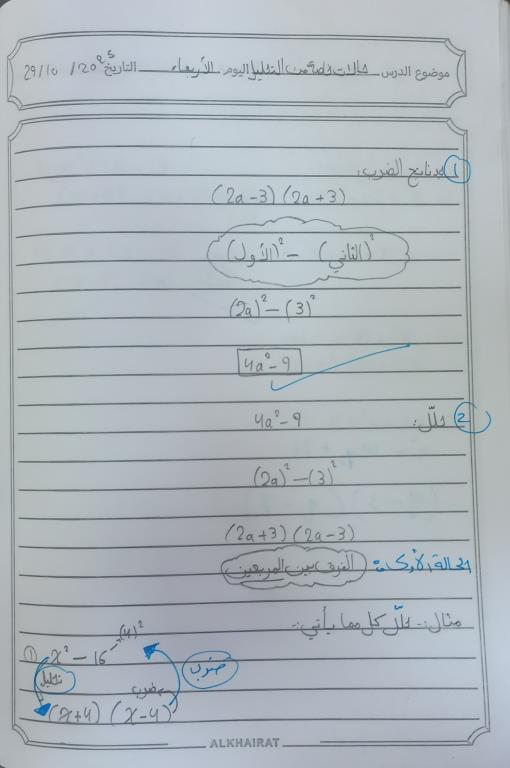 موضوع الدرس حالات خاصة من التحليل اليوم الأربعاء التاريخ 29/10 /2025
① جد ناتج الضرب:
(2a-3) (2a+3)
(الأول)² - (الثاني)²
(2a)² - (3)²
4a² - 9
② حلّل: 4a² - 9
(2a)² - (3)²
(2a+3) (2a-3)
الحالة الأولى: الفرق بين المربعين
مثال:- حلّل كل مما يأتي:-
① x² - 16 (4)²
تحليل ضرب
(x+4) (x-4)
ALKHAIRAT